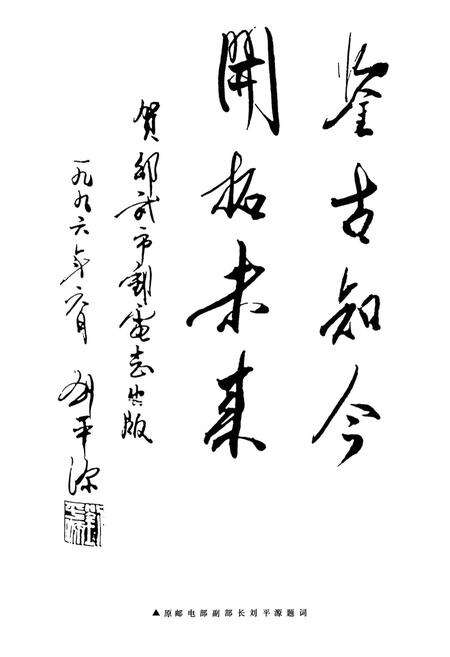 鉴古知今
開拓未来
賀邵武市郵電志出版
一九九六年六月
刘平源
▲原邮电部副部长刘平源题词